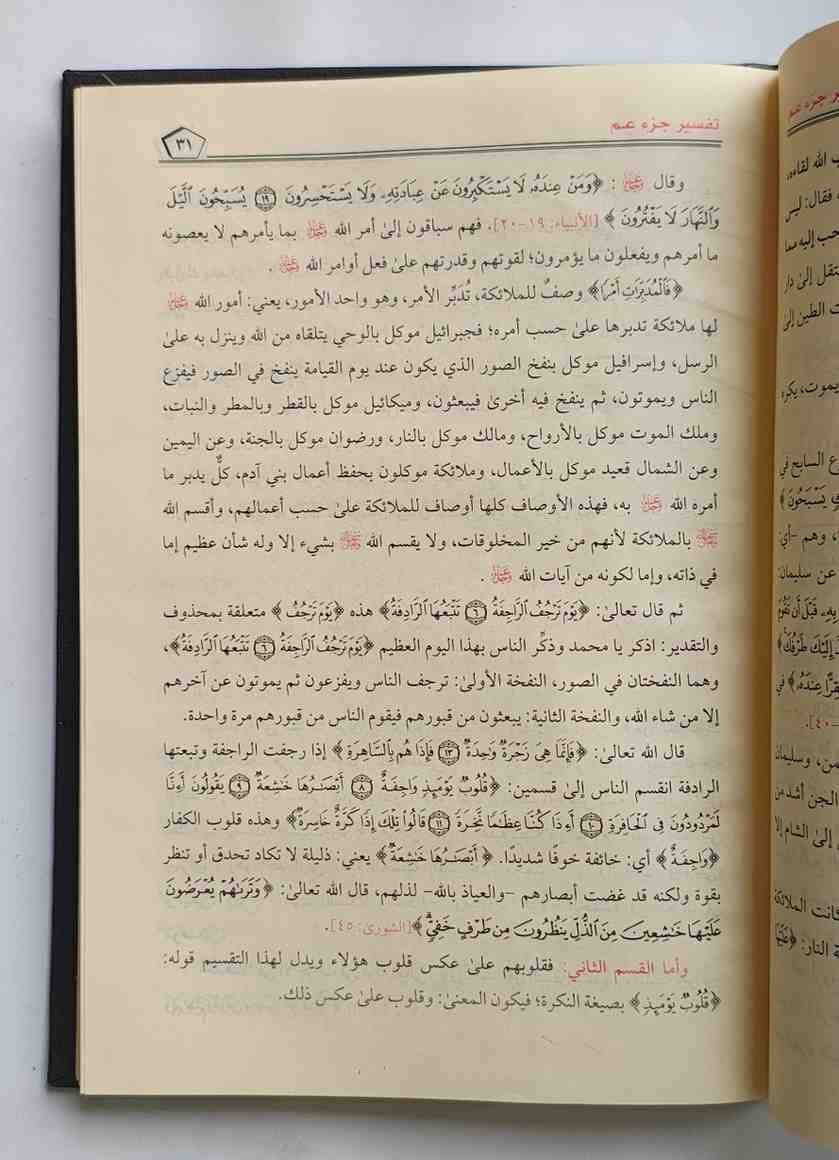 تفسير جزء عم
٣١
وقال ﷿ : ﴿وَمَنْ عِندَهُۥ لَا يَسْتَكْبِرُونَ عَنْ عِبَادَتِهِۦ وَلَا يَسْتَحْسِرُونَ ۝١٩ يُسَبِّحُونَ ٱلَّيْلَ
وَٱلنَّهَارَ لَا يَفْتُرُونَ ﴾ [الأنبياء: ١٩-٢٠]. فهم سباقون إلىٰ أمر الله ﷿ بما يأمرهم لا يعصونه
ما أمرهم ويفعلون ما يؤمرون؛ لقوتهم وقدرتهم علىٰ فعل أوامر الله ﷿ .
﴿فَٱلْمُدَبِّرَٰتِ أَمْرًا﴾ وصفٌ للملائكة، تُدَبِّر الأمر، وهو واحد الأمور، يعني: أمور الله ﷿
لها ملائكة تدبرها علىٰ حسب أمره؛ فجبرائيل موكل بالوحي يتلقاه من الله وينزل به علىٰ
الرسل، وإسرافيل موكل بنفخ الصور الذي يكون عند يوم القيامة ينفخ في الصور فيفزع
الناس ويموتون، ثم ينفخ فيه أخرىٰ فيبعثون، وميكائيل موكل بالقطر وبالمطر والنبات،
وملك الموت موكل بالأرواح، ومالك موكل بالنار، ورضوان موكل بالجنة، وعن اليمين
وعن الشمال قعيد موكل بالأعمال، وملائكة موكلون بحفظ أعمال بني آدم، كلٌّ يدبر ما
أمره الله ﷿ به، فهذه الأوصاف كلها أوصاف للملائكة علىٰ حسب أعمالهم، وأقسم الله
بالملائكة لأنهم من خير المخلوقات، ولا يقسم الله بشيء إلا وله شأن عظيم إما
في ذاته، وإما لكونه من آيات الله ﷿ .
ثم قال تعالىٰ: ﴿يَوْمَ تَرْجُفُ ٱلرَّاجِفَةُ ۝٦ تَتْبَعُهَا ٱلرَّادِفَةُ﴾ هذه ﴿يَوْمَ تَرْجُفُ ﴾ متعلقة بمحذوف
والتقدير: اذكر يا محمد وذكِّر الناس بهذا اليوم العظيم ﴿يَوْمَ تَرْجُفُ ٱلرَّاجِفَةُ ۝٦ تَتْبَعُهَا ٱلرَّادِفَةُ﴾،
وهما النفختان في الصور، النفخة الأولىٰ: ترجف الناس ويفزعون ثم يموتون عن آخرهم
إلا من شاء الله، والنفخة الثانية: يبعثون من قبورهم فيقوم الناس من قبورهم مرة واحدة.
قال الله تعالىٰ: ﴿فَإِنَّمَا هِىَ زَجْرَةٌ وَٰحِدَةٌ ۝١٣ فَإِذَا هُم بِٱلسَّاهِرَةِ ﴾ إذا رجفت الراجفة وتبعتها
الرادفة انقسم الناس إلىٰ قسمين: ﴿قُلُوبٌ يَوْمَئِذٍ وَاجِفَةٌ ۝٨ أَبْصَٰرُهَا خَٰشِعَةٌ ۝٩ يَقُولُونَ أَءِنَّا
لَمَرْدُودُونَ فِى ٱلْحَافِرَةِ ۝١٠ أَءِذَا كُنَّا عِظَٰمًا نَّخِرَةً ۝١١ قَالُوا۟ تِلْكَ إِذًا كَرَّةٌ خَاسِرَةٌ﴾ وهذه قلوب الكفار
﴿وَاجِفَةٌ ﴾ أي: خائفة خوفًا شديدًا. ﴿ أَبْصَٰرُهَا خَٰشِعَةٌ﴾ يعني: ذليلة لا تكاد تحدق أو تنظر
بقوة ولكنه قد غضت أبصارهم -والعياذ بالله- لذلهم، قال الله تعالىٰ: ﴿وَتَرَىٰهُمْ يُعْرَضُونَ
عَلَيْهَا خَٰشِعِينَ مِنَ ٱلذُّلِّ يَنظُرُونَ مِن طَرْفٍ خَفِىٍّ ﴾[الشورىٰ: ٤٥].
وأما القسم الثاني: فقلوبهم علىٰ عكس قلوب هؤلاء ويدل لهذا التقسيم قوله:
﴿قُلُوبٌ يَوْمَئِذٍ ﴾ بصيغة النكرة؛ فيكون المعنىٰ: وقلوب علىٰ عكس ذلك.